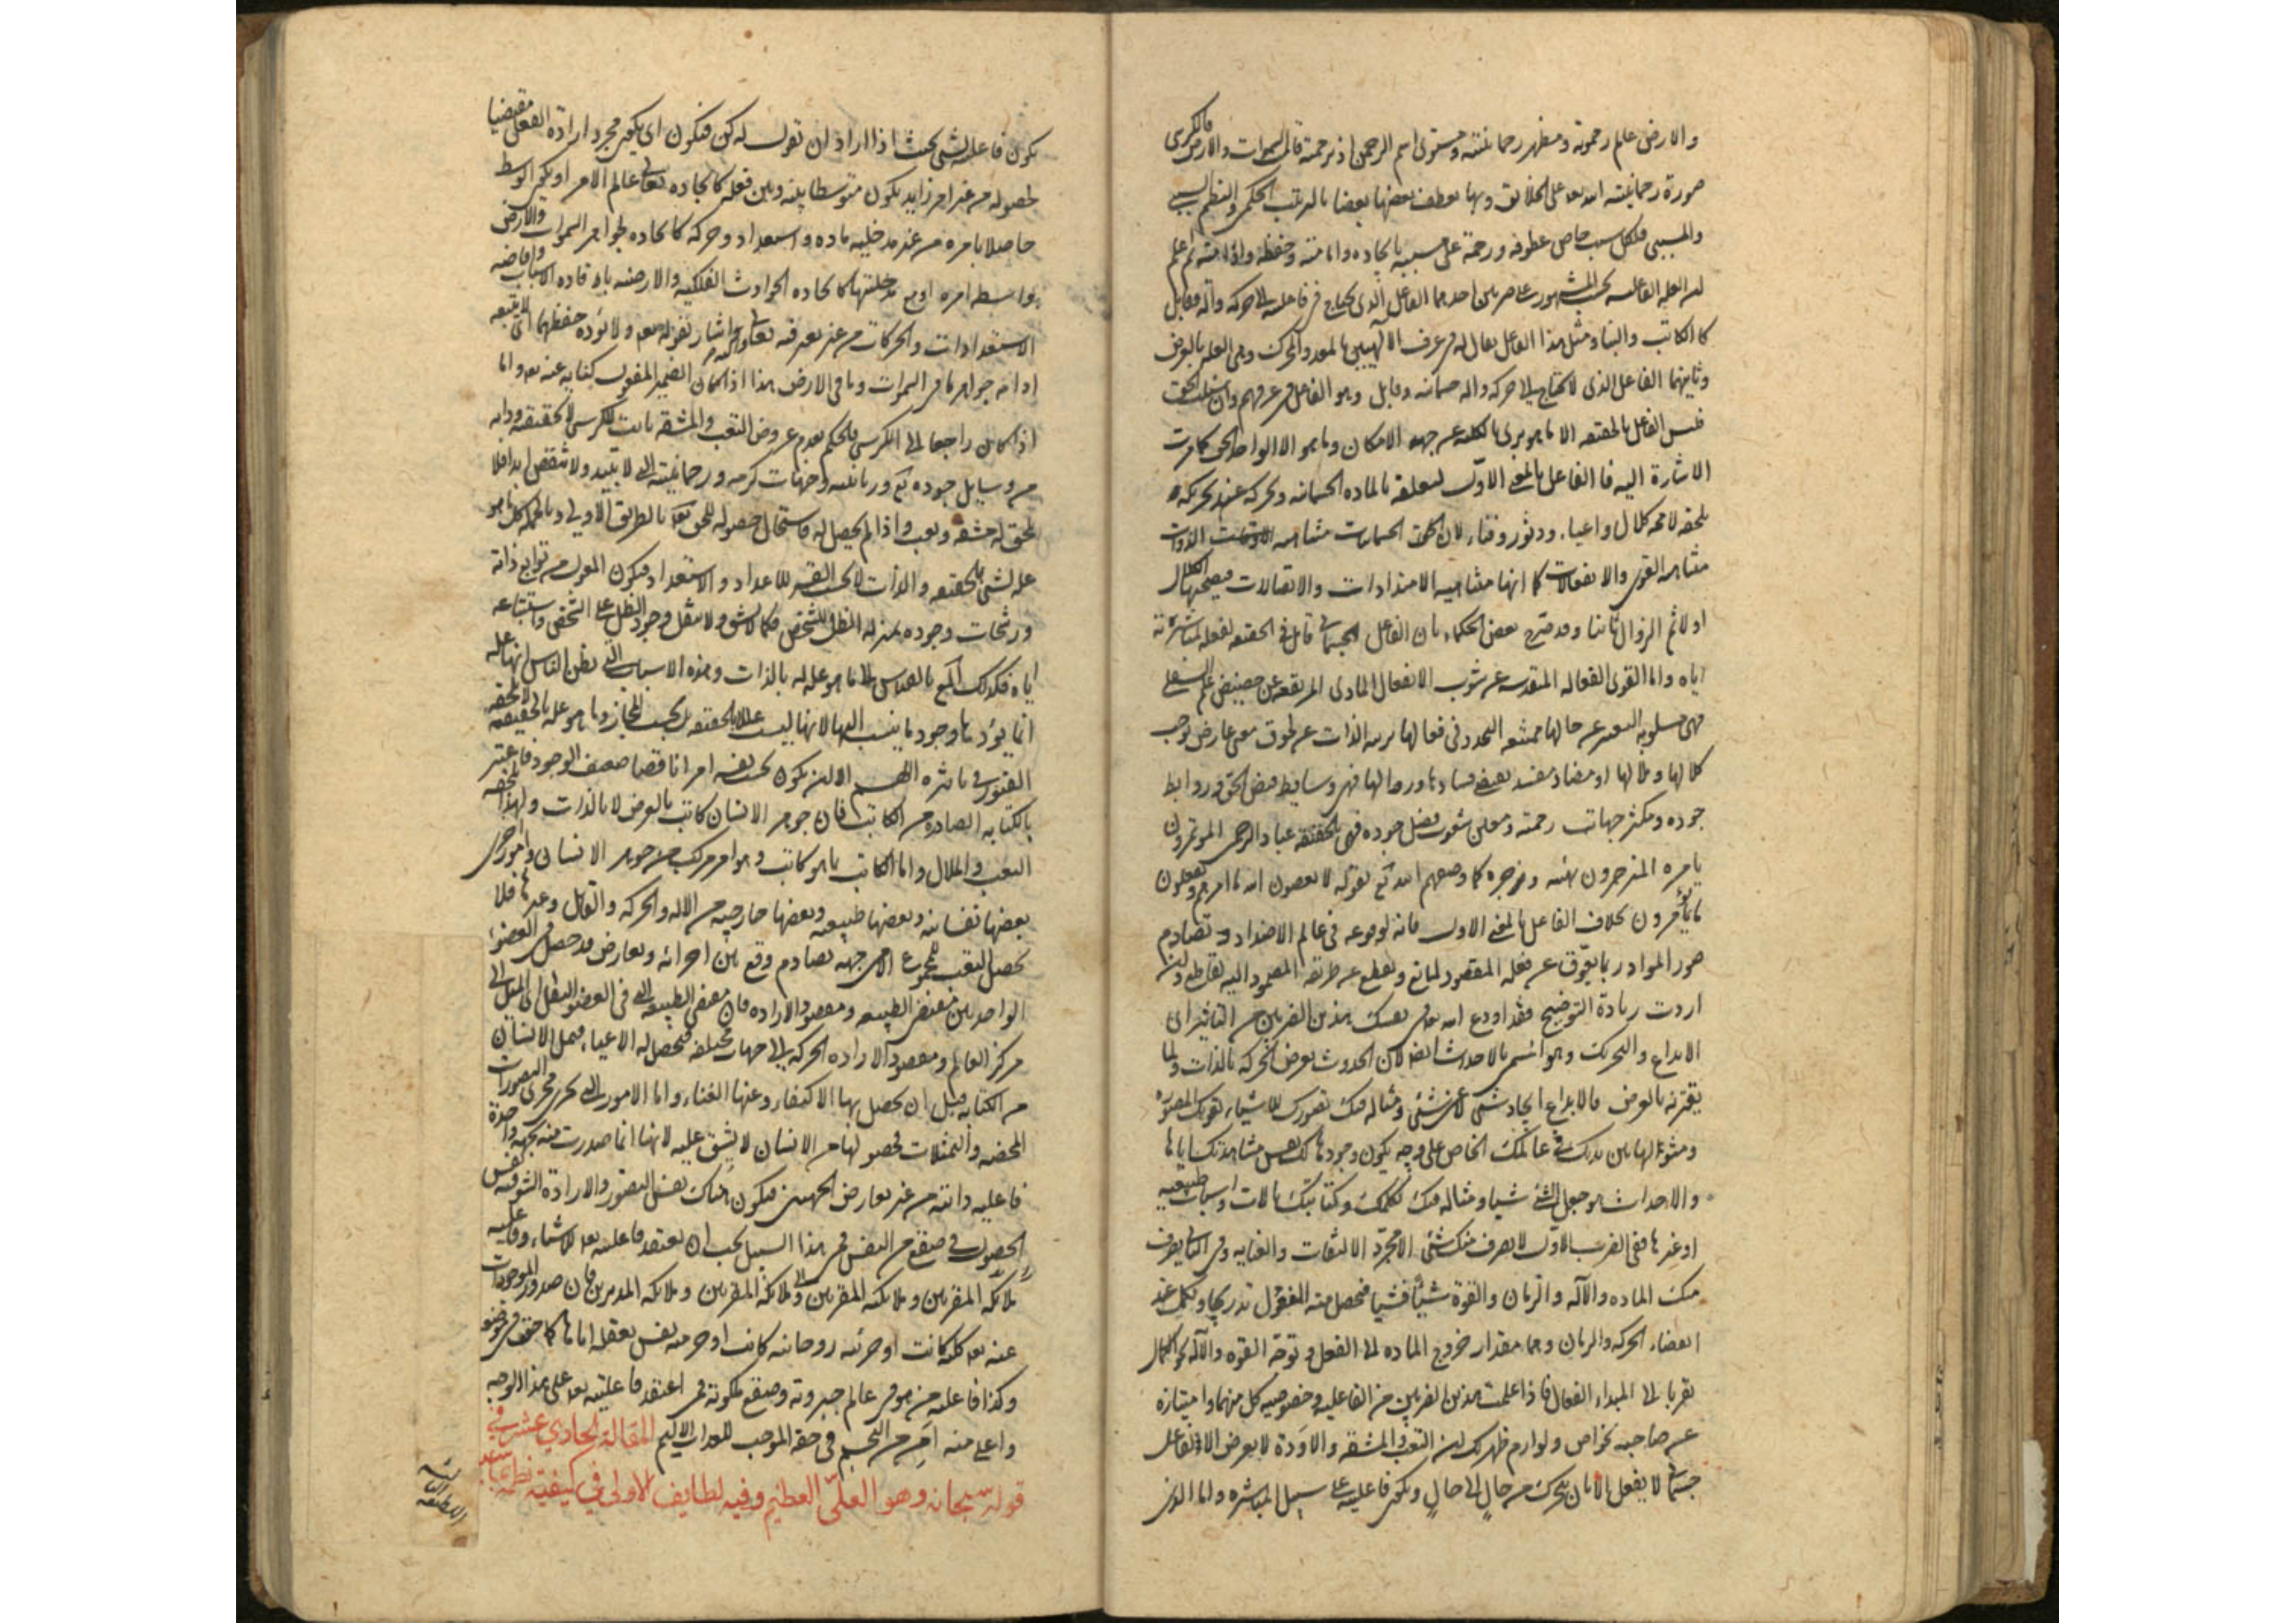 والارض علم رحموته ومظهر رحمانيته ومستوى اسم الرحمن اذ برحمته قام السموات والارض فالكرسى
صورة رحمانيته الله تعد على الخلائق وبها يعطف بعضها بعضا بالترتيب الحكمى والنظم السببى
والمسببى فلكل سبب خاص عطوفه ورحمة على مسببه بايجاده وادامته وحفظه وادامته ثم اعلم
ان العله الفاعليه بحسب المشهور على ضربين احدهما الفاعل الذى يحتاج فى فاعليته الى حركه وآله وقابل
كالكاتب والبناء ومثل هذا الفاعل يقال له فى عرف الالهيين بالمعد والمحرك وهى العله بالعرض
وثانيهما الفاعل الذى لا يحتاج الى حركه واله جسمانيه وقابل وهو الفاعل فى عرفهم وان سئلت الحق
فليس الفاعل بالحقيقه الا ما هو برى بالكليه عن جهه الامكان وما هو الا الواحد الحق كما مرت
الاشارة اليه فالفاعل بالمعنى الاول لتعلقه بالماده الجسمانيه وتحركه عند تحريكه
يلحقه لا محه كلال واعياء ودثور وفناء لان الجسمانيات متناهيه الذوات
متناهيه القوى والانفعالات كما انها متناهيه الامتدادات والاتصالات فيصحبها الكلال
اولا ثم الزوال ثانيا وقد صرح بعض الحكماء بان الفاعل الجسمانى قابل فى الحقيقه لفعله لمباشرته
اياه واما القوى الفعاله المقدسه عن شوب الانفعال المادى المرتفعه عن حضيض عالم السفلى
فهى مسلوبه التغير عن حالها ممتنعه التجدد فى فعالها بريه الذات عن طروق معنى عارض يوجب
كلالها وملالها او مضاد مفسد يقتضى فسادها وزوالها فهى وسايط فيض الحق وروابط
جوده ومكثر جهات رحمته فهى بالحقيقه عباد الرحمن الموتمرون
بامره المنزجرون بنهيه وزجره كما وصفهم الله تع بقوله لا يعصون الله ما امرهم ويفعلون
ما يؤمرون بخلاف الفاعل بالمعنى الاول فانه لوقوعه فى عالم الاضداد وتصادم
صور المواد ربما يتعوق عن فعله المقصود لمانع وينقطع عن طريقه المقصود اليه لقاطع وان
اردت زيادة التوضيح فقد اودع الله تعالى فى نفسك هذين الضربين من التاثير اى
الابداع والتحريك وهو المسمى بالاحداث ايضا لان الحدوث يعرض الحركه بالذات ولما
يقترنه بالعرض فالابداع ايجاد شئ لا عن شئ ومثاله فيك تصورك للاشياء لقوتك المصوره
ومثولها بين يديك فى عالمك الخاص على وجه يكون وجودها لك نفس مشاهدتك اياها
والاحداث هو جعل الشئ شيئا ومثاله فيك تكلمك وكتابتك بالات واسباب طبيعيه
او غيرها ففى الضرب الاول لا يصرف منك شئ الا مجرد الالتفات والعنايه وفى الثانى يصرف
منك الماده والآله والزمان والقوة شيئا فشيئا فيحصل منه الفعل تدريجا وتكلم عند
انقضاء الحركه والزمان وهما مقدار خروج الماده الى الفعل وتوجه القوه والآله نحو الكمال
تقربا الى المبداء الفعال فاذا علمت هذين الضربين من الفاعليه وخصوصيه كل منهما وامتيازه
عن صاحبه بخواص ولوازم ظهر لك ان التعب والمشقه والاودة لا يعرض الا لفاعل
جسمانى لا يفعل الا بان يتحرك من حال الى حال ويكون فاعليته على سبيل المباشره واما الذى
يكون فاعليته لشئ بحيث اذا اراد ان يقول له كن فيكون اى يكون مجرد اراده الفعل مقتضيا
لحصوله من غير امر زايد يكون متوسطا بينه وبين فعله كايجاده تعالى عالم الامر او يكون الوسط
حاصلا بامره من غير مدخليه ماده واستعداد وحركه كايجاده لجواهر السموات والارض
بواسطه امره او مع مدخليتها كايجاده الحوادث الفلكيه والارضيه بافاده الاسباب وافاضه
الاستعدادات والحركات من غير تعب فيه واشار بقوله تعد ولا يؤده حفظهما اى لا يتعبه
ادامه جواهر ما فى السموات وما فى الارض هذا اذا كان الضمير المفعول كنايه عنه تعد واما
اذا كان راجعا الى الكرسى فالحكم بعدم عروض التعب والمشقه ثابت للكرسى لا بحقيقته وذاته
من وسايل جوده تع وربانيته وجهات كرمه ورحمانيته التى لا تبيد ولا تنقص ابدا فلا
يلحق له مشقه وتعب واذا لم يحصل له فاستحال حصوله للحق تعد بالطريق الاولى وبالجمله كل ما هو
عله لشئ بالحقيقه والذات لا بحسب القسر للاعداد والاستعداد فيكون المعول من توابع ذاته
ورشحات وجوده بمنزله الظل للشخص فكما لا يشق ولا يثقل وجود الظل على الشخص واستتباعه
اياه فكذلك الحكم بالقياس الى ما هو عله له بالذات وهذه الاسباب التى يظن الناس انها علله
انما يؤدها وجود ما ينسب اليها لانها ليست عللا بالحقيقه بل بحسب المجاز وما هو عله بالحقيقه لا يلحقه
الفتور فى تاثيره اللهم الا ان يكون بحسب نفسه امرا ناقصا ضعيف الوجود فاعتبر
بالكتابه الصادره من الكاتب فان جوهر الانسان كاتب بالعرض لا بالذات ولهذا يلحقه
التعب والملال واما الكاتب بما هو كاتب وهو امر مركب من جوهر الانسان وامور اخرى
بعضها نفسانيه وبعضها طبيعيه وبعضها خارجيه من الاله والحركه والقابل وغيرها فلا
يحصل التعب للمجموع الا من جهه تصادم وقع بين اجزائه وتعارض قد حصل فى العضو
الواحد بين مقتضى الطبيعه ومقصود الاراده فان مقتضى الطبيعه التى فى العضو الثقل اى الميل الى
مركز العالم ومقصود الاراده الحركه الى جهات مختلفه فيحصل له الاعياء فيمل الانسان
من الكتابه قبل ان يحصل بها الاكتفاء وعنها الغناء واما الامور التى تجرى مجرى التصورات
المحضه والتمثلات فحصولها من الانسان لا يشق عليه لانها انما صدرت منه بجهه واحدة
فاعليه ذاتيه من غير تعارض الجهتين فيكون هناك نفس التصور والارادة الشوقيه نفس
الحصول فى صقع من النفس فمن هذا السبيل يجب ان يعتقد فاعليته تعد للاشياء وفاعليه
ملائكه المقربين وملائكه المدبرين فان صدور الموجودات
عنه تعد كليه كانت او جزئيه روحانيه كانت او جرميه نفس تعقله اياها كما حقق فى موضعه
وكذا فاعليه من هو فى عالم جبروته وصقع ملكوته فمن اعتقد فاعليته تعد على هذا الوجه
واعلى منه امن من التجسم فى حقه الموجب للعذاب الاليم المقالة الحادي عشر في
قوله سبحانه وهو العلىّ العظيم وفيه لطايف الاولى في كيفيّة نظمه